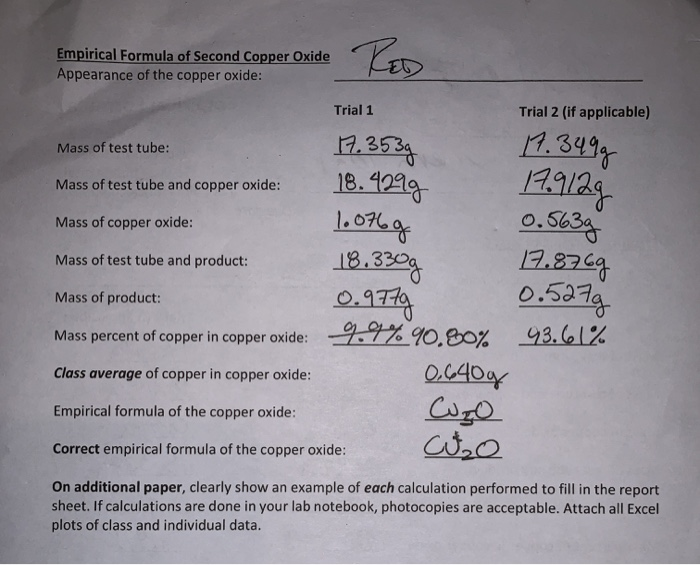 Empirical Formula of Second Copper Oxide RED
Appearance of the copper oxide:
Trial 1 Trial 2 (if applicable)
Mass of test tube: 17.353g 17.349g
Mass of test tube and copper oxide: 18.429g 17.912g
Mass of copper oxide: 1.076g 0.563g
Mass of test tube and product: 18.330g 17.876g
Mass of product: 0.977g 0.527g
Mass percent of copper in copper oxide: 9.9% 90.80% 93.61%
Class average of copper in copper oxide: 0.640g
Empirical formula of the copper oxide:
Correct empirical formula of the copper oxide: Cu2O
On additional paper, clearly show an example of each calculation performed to fill in the report
sheet. If calculations are done in your lab notebook, photocopies are acceptable. Attach all Excel
plots of class and individual data.